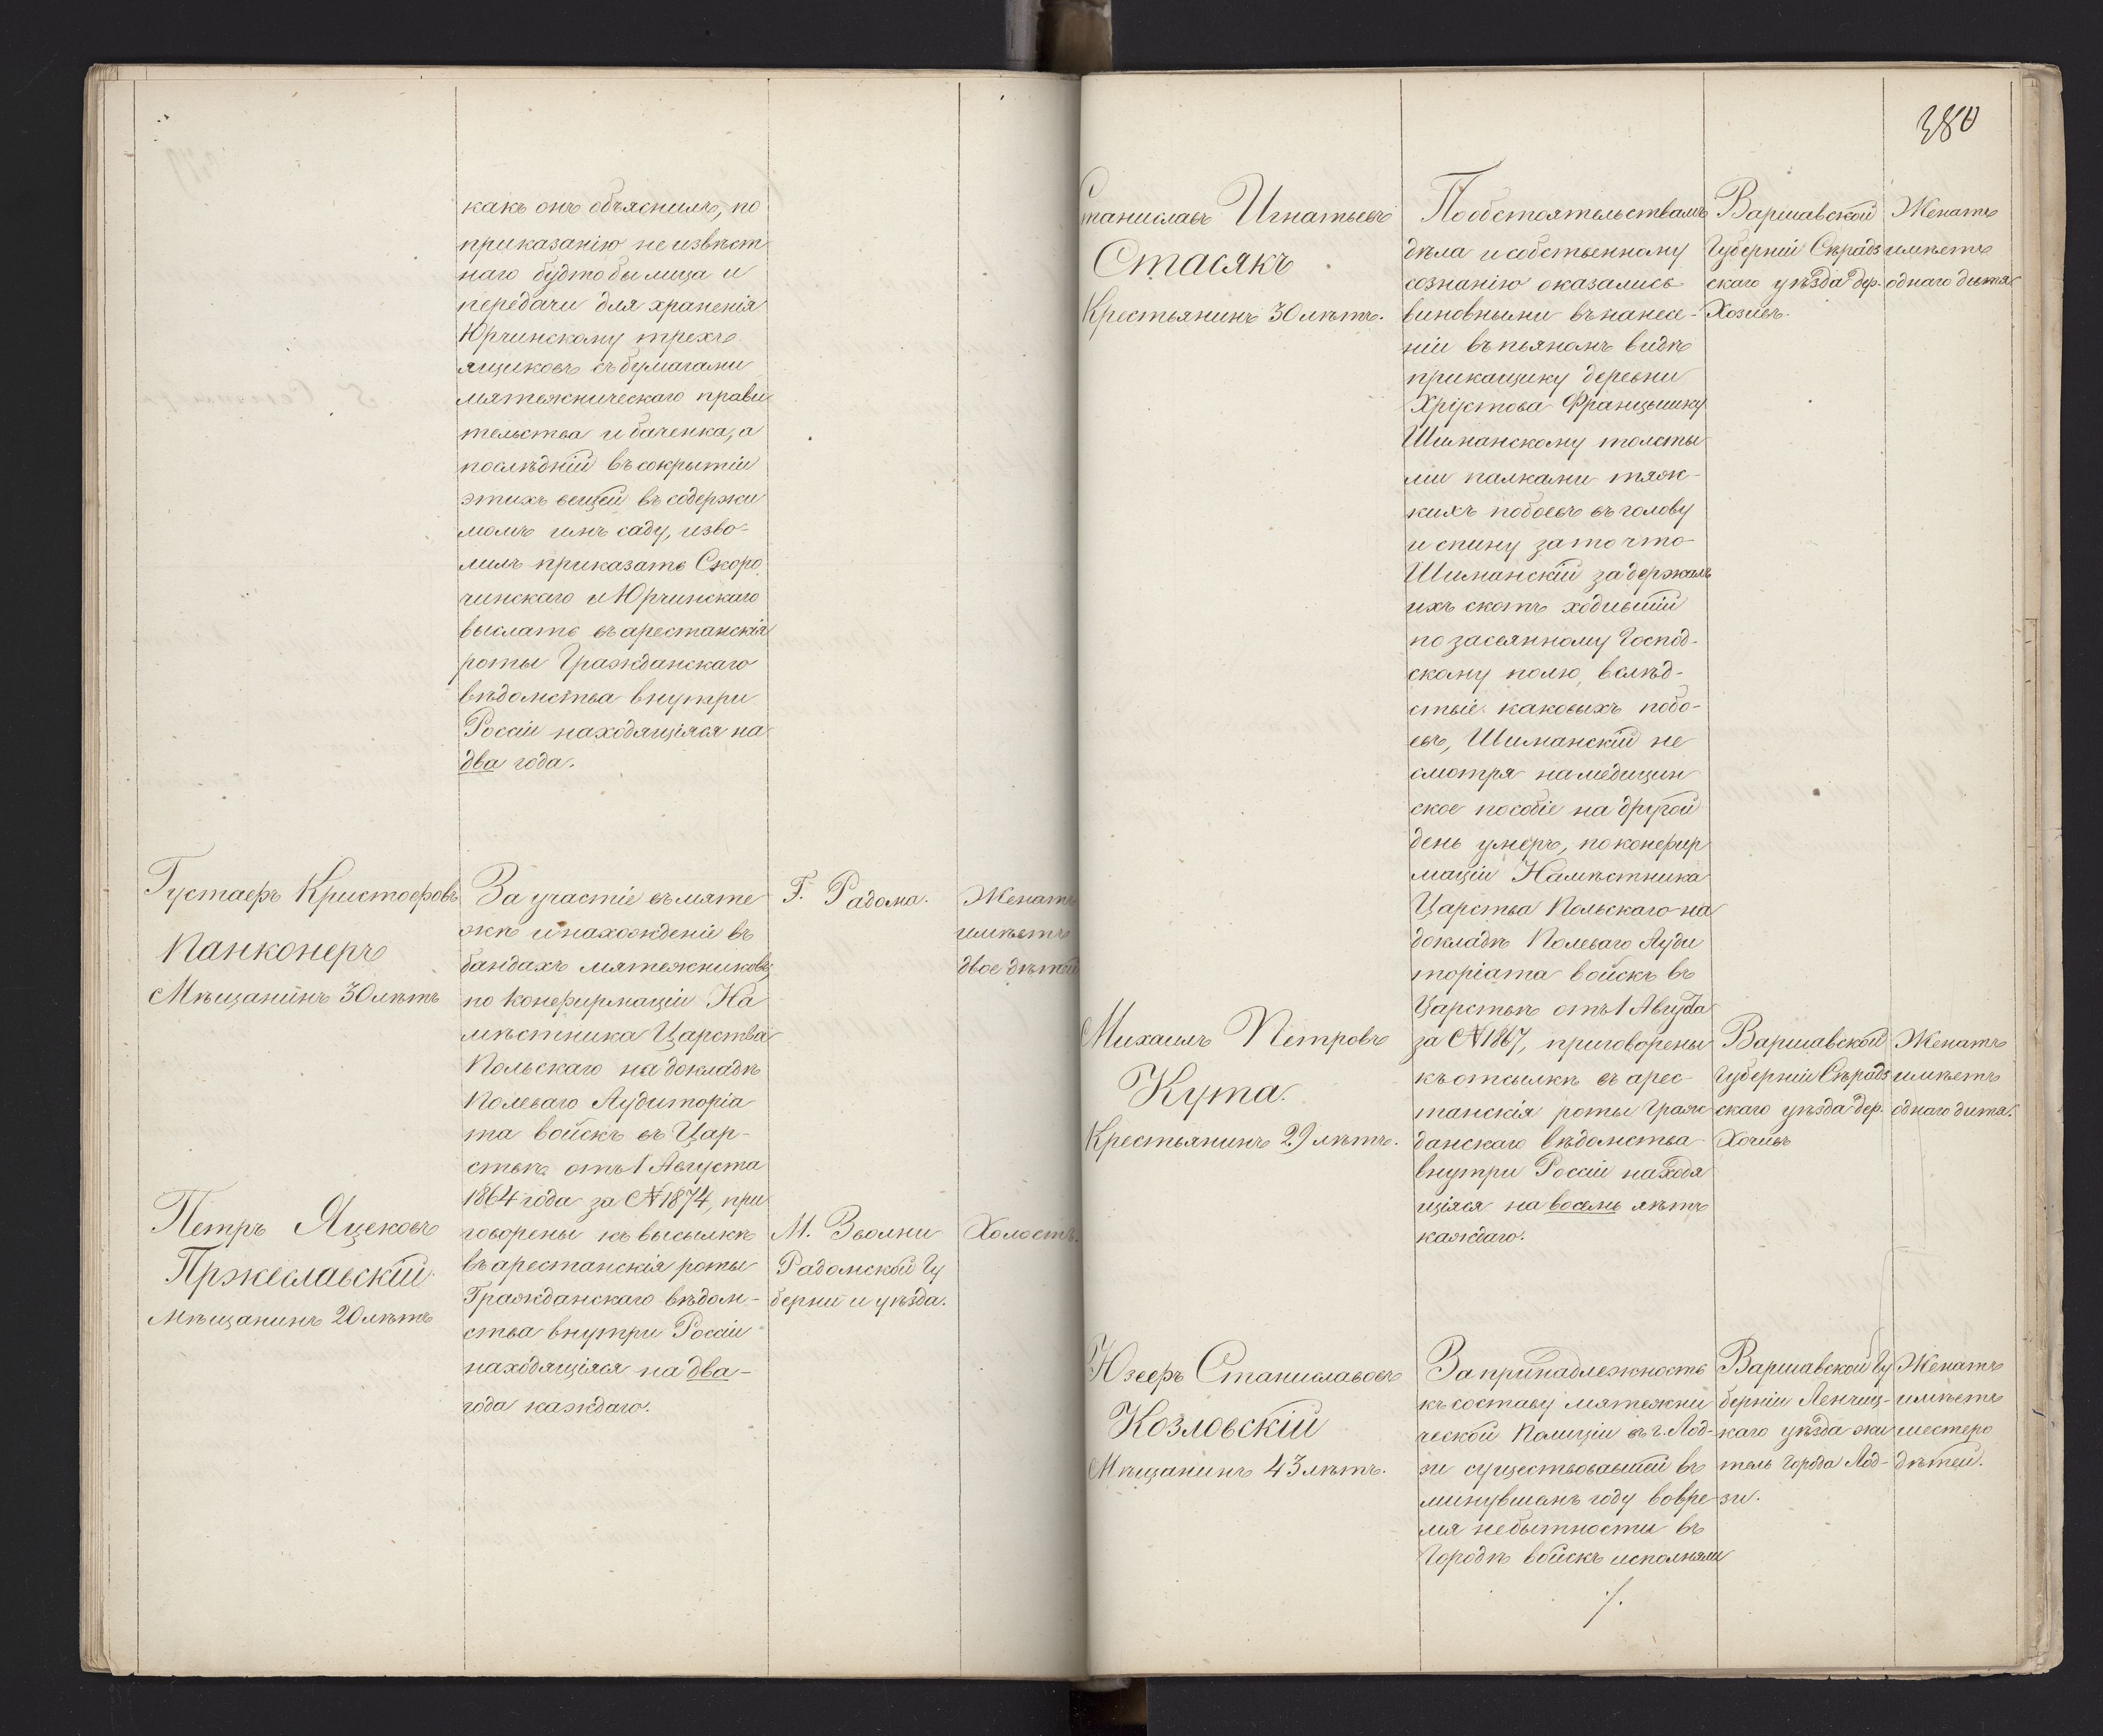 какъ онъ объяснилъ, по
приказанію неизвѣст
наго будто бы лица и
передачи для храненія
Юрчинскому трехъ
ящиковъ съ бумагами
мятежническаго прави
тельства и баченка, а
послѣдній въ сокрытіи
этихъ вещей въ содержи
момъ имъ саду, изво-
лилъ приказать Скоро
чинскаго и Юрчинскаго
выслать въ арестанскія
роты Гражданскаго
вѣдомства внутри
Россіи находящіяся на
два года.
Густафъ Кристофовъ
Панконеръ
Мѣщанинъ 30 лѣтъ
За участіе въ мяте
жѣ и нахожденіи въ
бандахъ мятежниковъ,
по конфирмаціи На
мѣстника Царства
Польскаго на докладѣ
Полеваго Аудиторіа
та войскъ въ Цар-
ствѣ отъ 1 Августа
1864 года за № 1874, при
говорены къ высылкѣ
въ арестанскія роты
Гражданскаго вѣдом-
ства внутри Россіи
находящіяся на два-
года каждаго.
Г. Радома.
Женатъ
имѣетъ
двое дѣтей
Петръ Яцековъ
Пржеславскій
Мѣщанинъ 20 лѣтъ
М. Зволни
Радомской Гу
берніи и уѣзда.
Холостъ.
380
Станиславъ Игнатьевъ
Стасякъ
Крестьянинъ 30 лѣтъ.
По обстоятельствамъ
дѣла и собственному
сознанію оказались
виновными въ нанесе-
ніи въ пьяномъ видѣ
прикащику деревни
Хрустова Францышку
Шиманскому толсты
ми палками тяж-
кихъ побоевъ въ голову
и спину за то что
Шиманскій задержалъ
ихъ скотъ ходившій
по засеянному Господ-
скому полю, вслѣд-
ствіе каковыхъ побо-
евъ, Шиманскій не
смотря на медицин
ское пособіе на другой
день умеръ, по конфир
маціи Намѣстника
Царства Польскаго на
докладѣ Полеваго Ауди
торіата войскъ въ
Царствѣ отъ 1 Августа
за № 1867, приговорены
къ отсылкѣ въ арес-
танскія роты Граж
данскаго вѣдомства
внутри Россіи находя
щіяся на восемь лѣтъ
каждаго.
Варшавской
Губерніи Сѣрадз
скаго уѣзда дер.
Хозѣвъ.
Женатъ
имѣетъ
однаго дитя
Михаилъ Петровъ
Кута.
Крестьянинъ 29 лѣтъ.
Варшавской
Губерніи Сѣрадз
скаго уѣзда дер.
Хочивъ
Женатъ
имѣетъ
однаго дитя.
Юзефъ Станиславовъ
Козловскій
Мѣщанинъ 43 лѣтъ.
За принадлежность
къ составу мятежни
ческой Полиціи въ г. Лод-
зи существовавшей въ
минувшемъ году во вре
мя небытности въ
Городѣ войскъ исполняли
Варшавской Гу
берніи Ленчиц-
каго уѣзда жи
тель Города Лод-
зи.
Женатъ
имѣетъ
шестеро
дѣтей.
./.